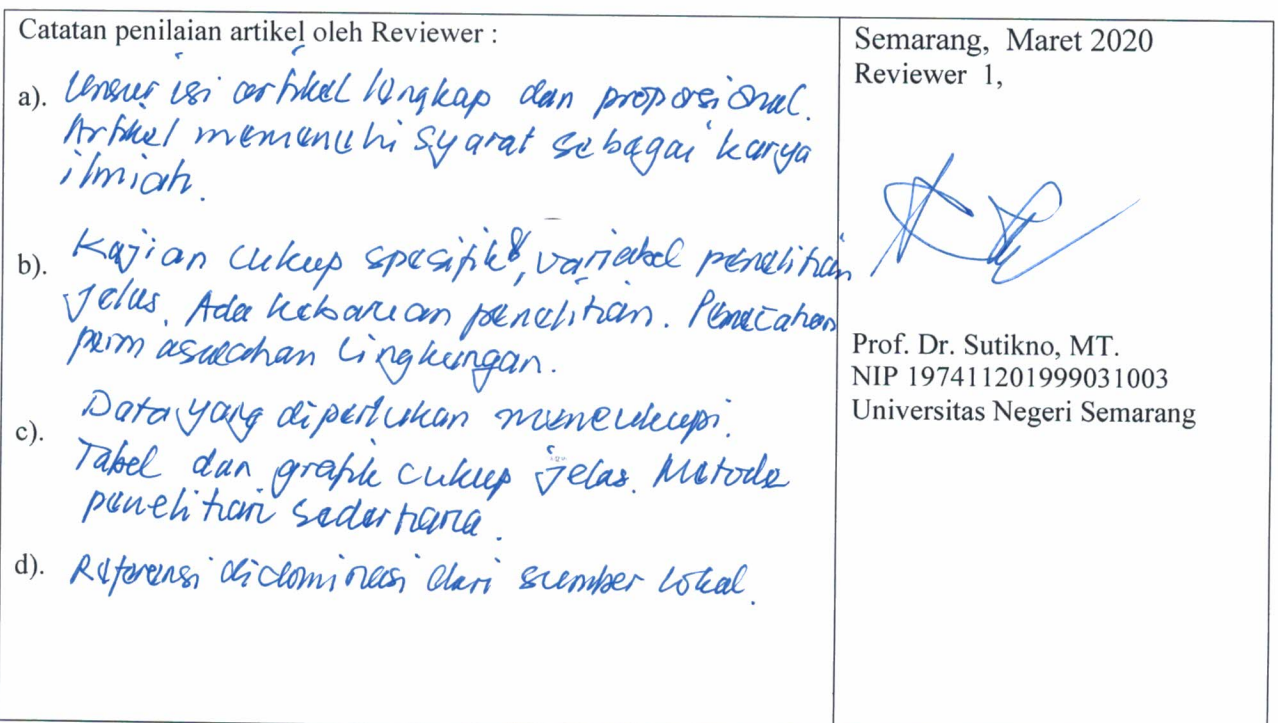 Catatan penilaian artikel oleh Reviewer :
a). Unsur isi artikel lengkap dan proporsional.
Artikel memenuhi syarat sebagai karya
ilmiah.
b). Kajian cukup spesifik, variabel penelitian
jelas. Ada kebaruan penelitian. Pemecahan
permasalahan lingkungan.
c). Data yang diperlukan mencukupi.
Tabel dan grafik cukup jelas. Metode
penelitian sederhana.
d). Referensi didominasi dari sumber lokal.
Semarang, Maret 2020
Reviewer 1,
Prof. Dr. Sutikno, MT.
NIP 197411201999031003
Universitas Negeri Semarang